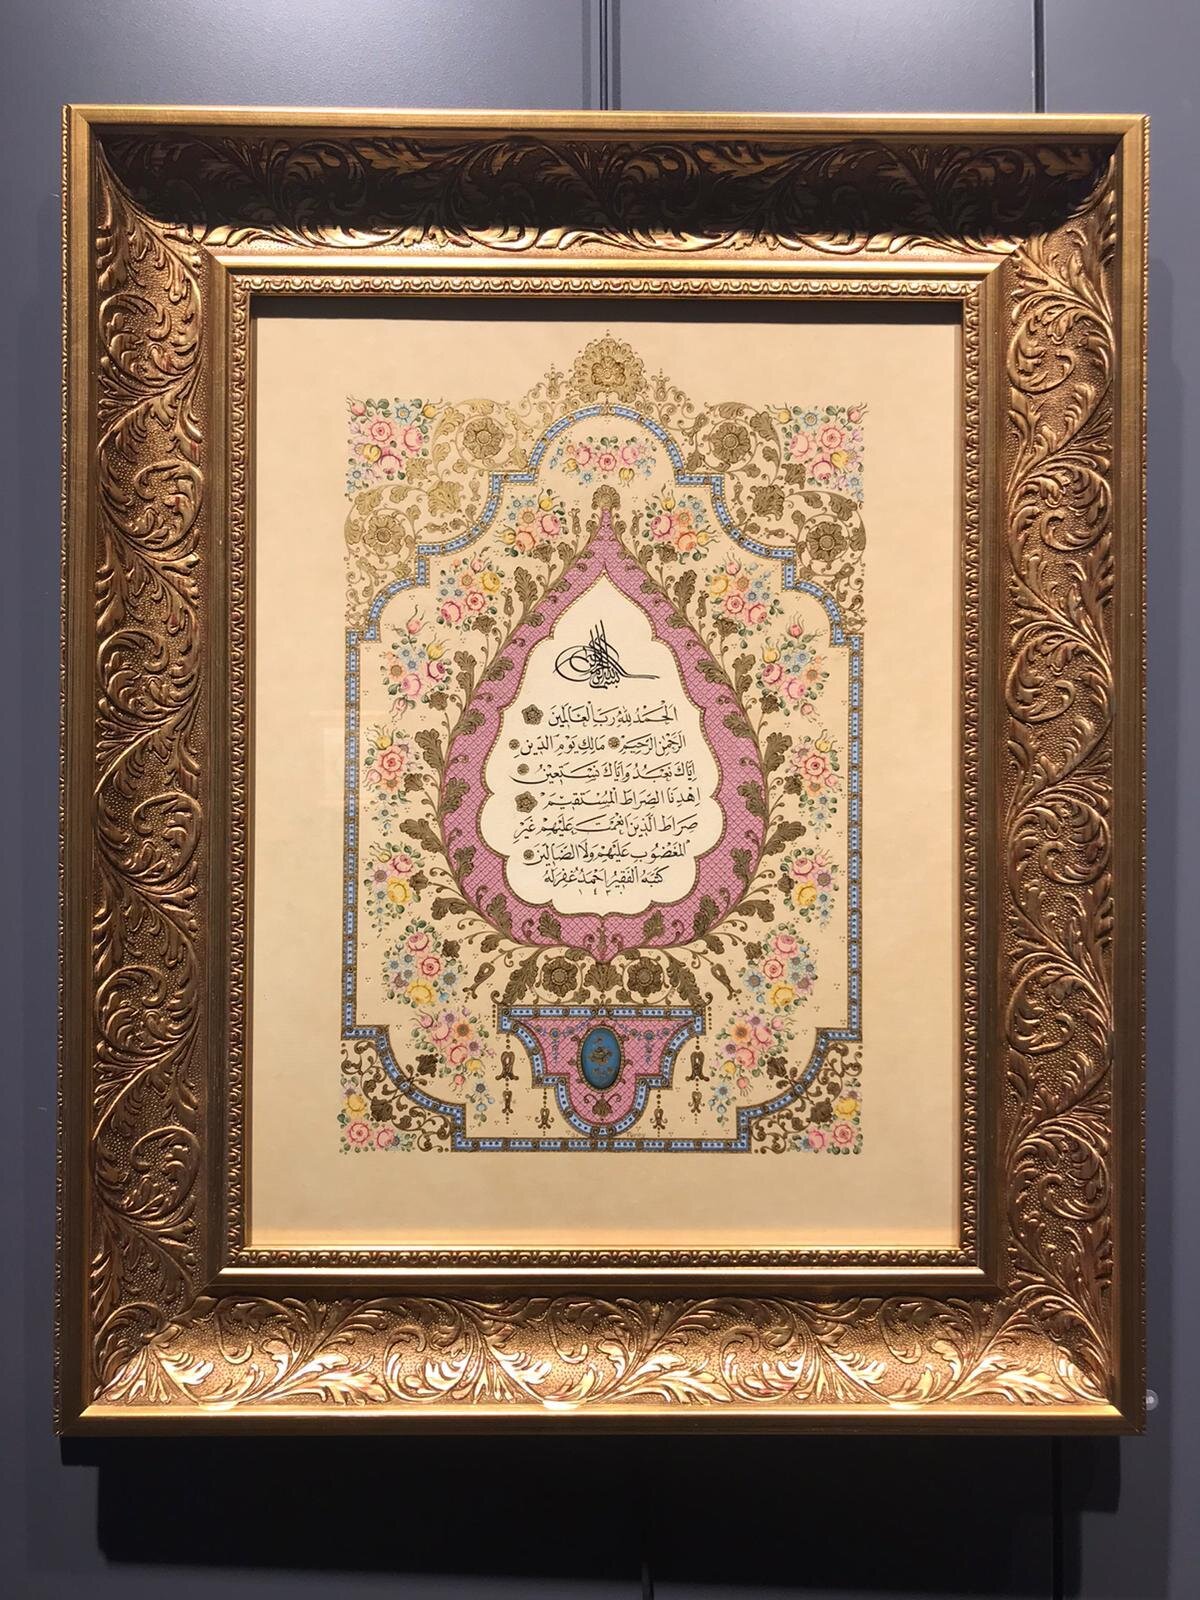 بسم الله الرحمن الرحيم
الحمد لله رب العالمين
الرحمن الرحيم مالك يوم الدين
اياك نعبد واياك نستعين
اهدنا الصراط المستقيم
صراط الذين انعمت عليهم غير
المغضوب عليهم ولا الضالين
كتبه الفقير احمد غفر له